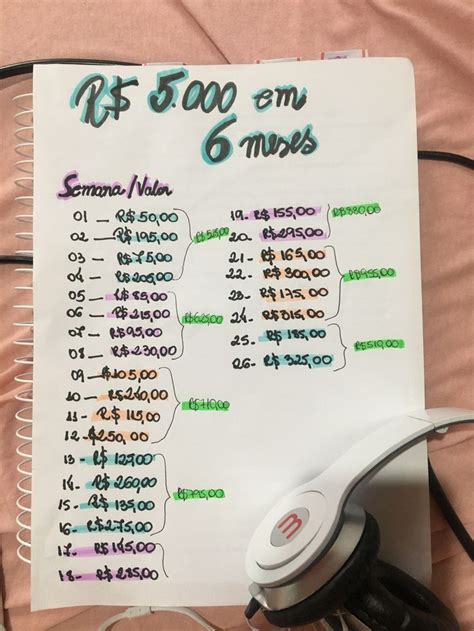 R$ 5.000 em
6 meses
Semana/Valor
01 — R$50,00
02 — R$195,00
03 — R$75,00
04 — R$205,00
R$525,00
05 — R$85,00
06 — R$215,00
07 — R$95,00
08 — R$230,00
R$625,00
09 — R$105,00
10 — R$240,00
11 — R$115,00
12 - $250,00
R$710,00
13 - R$125,00
14 - R$260,00
15 - R$135,00
16 - R$275,00
R$795,00
17 - R$145,00
18 - R$285,00
19 - R$155,00
20 - R$295,00
R$880,00
21 - R$165,00
22 - R$300,00
23 - R$175,00
24 - R$315,00
R$955,00
25 - R$185,00
26 - R$325,00
R$510,00